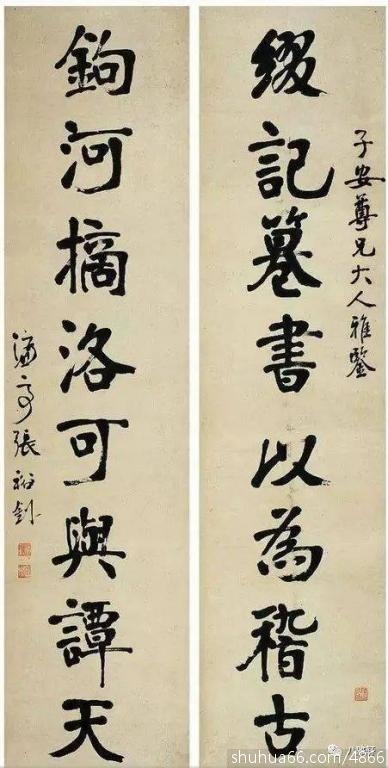 子安尊兄大人雅鑒
綴記篹書以為稽古
鉤河摘洛可與譚天
濂亭張裕釗
shuhua66.com/4866